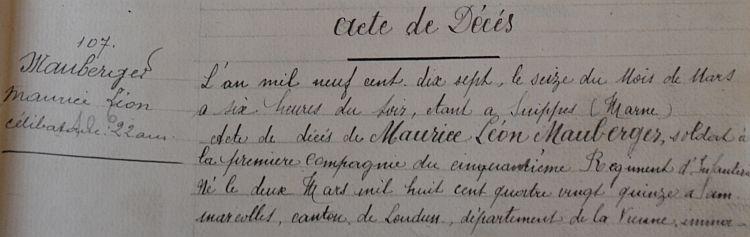 Acte de Décés
107.
Mauberger
Maurice Léon
célibataire 22 ans
L'an mil neuf cent dix sept, le seize du Mois de Mars
a six heures du soir, etant a Suippes (Marne)
Acte de décés de Maurice Léon Mauberger, soldat à
la première Compagnie du cinquantième Régiment d'Infanterie
Né le deux Mars mil huit cent quatre vingt quinze a Sam
marcolles, canton de Loudun, département de la Vienne, immo